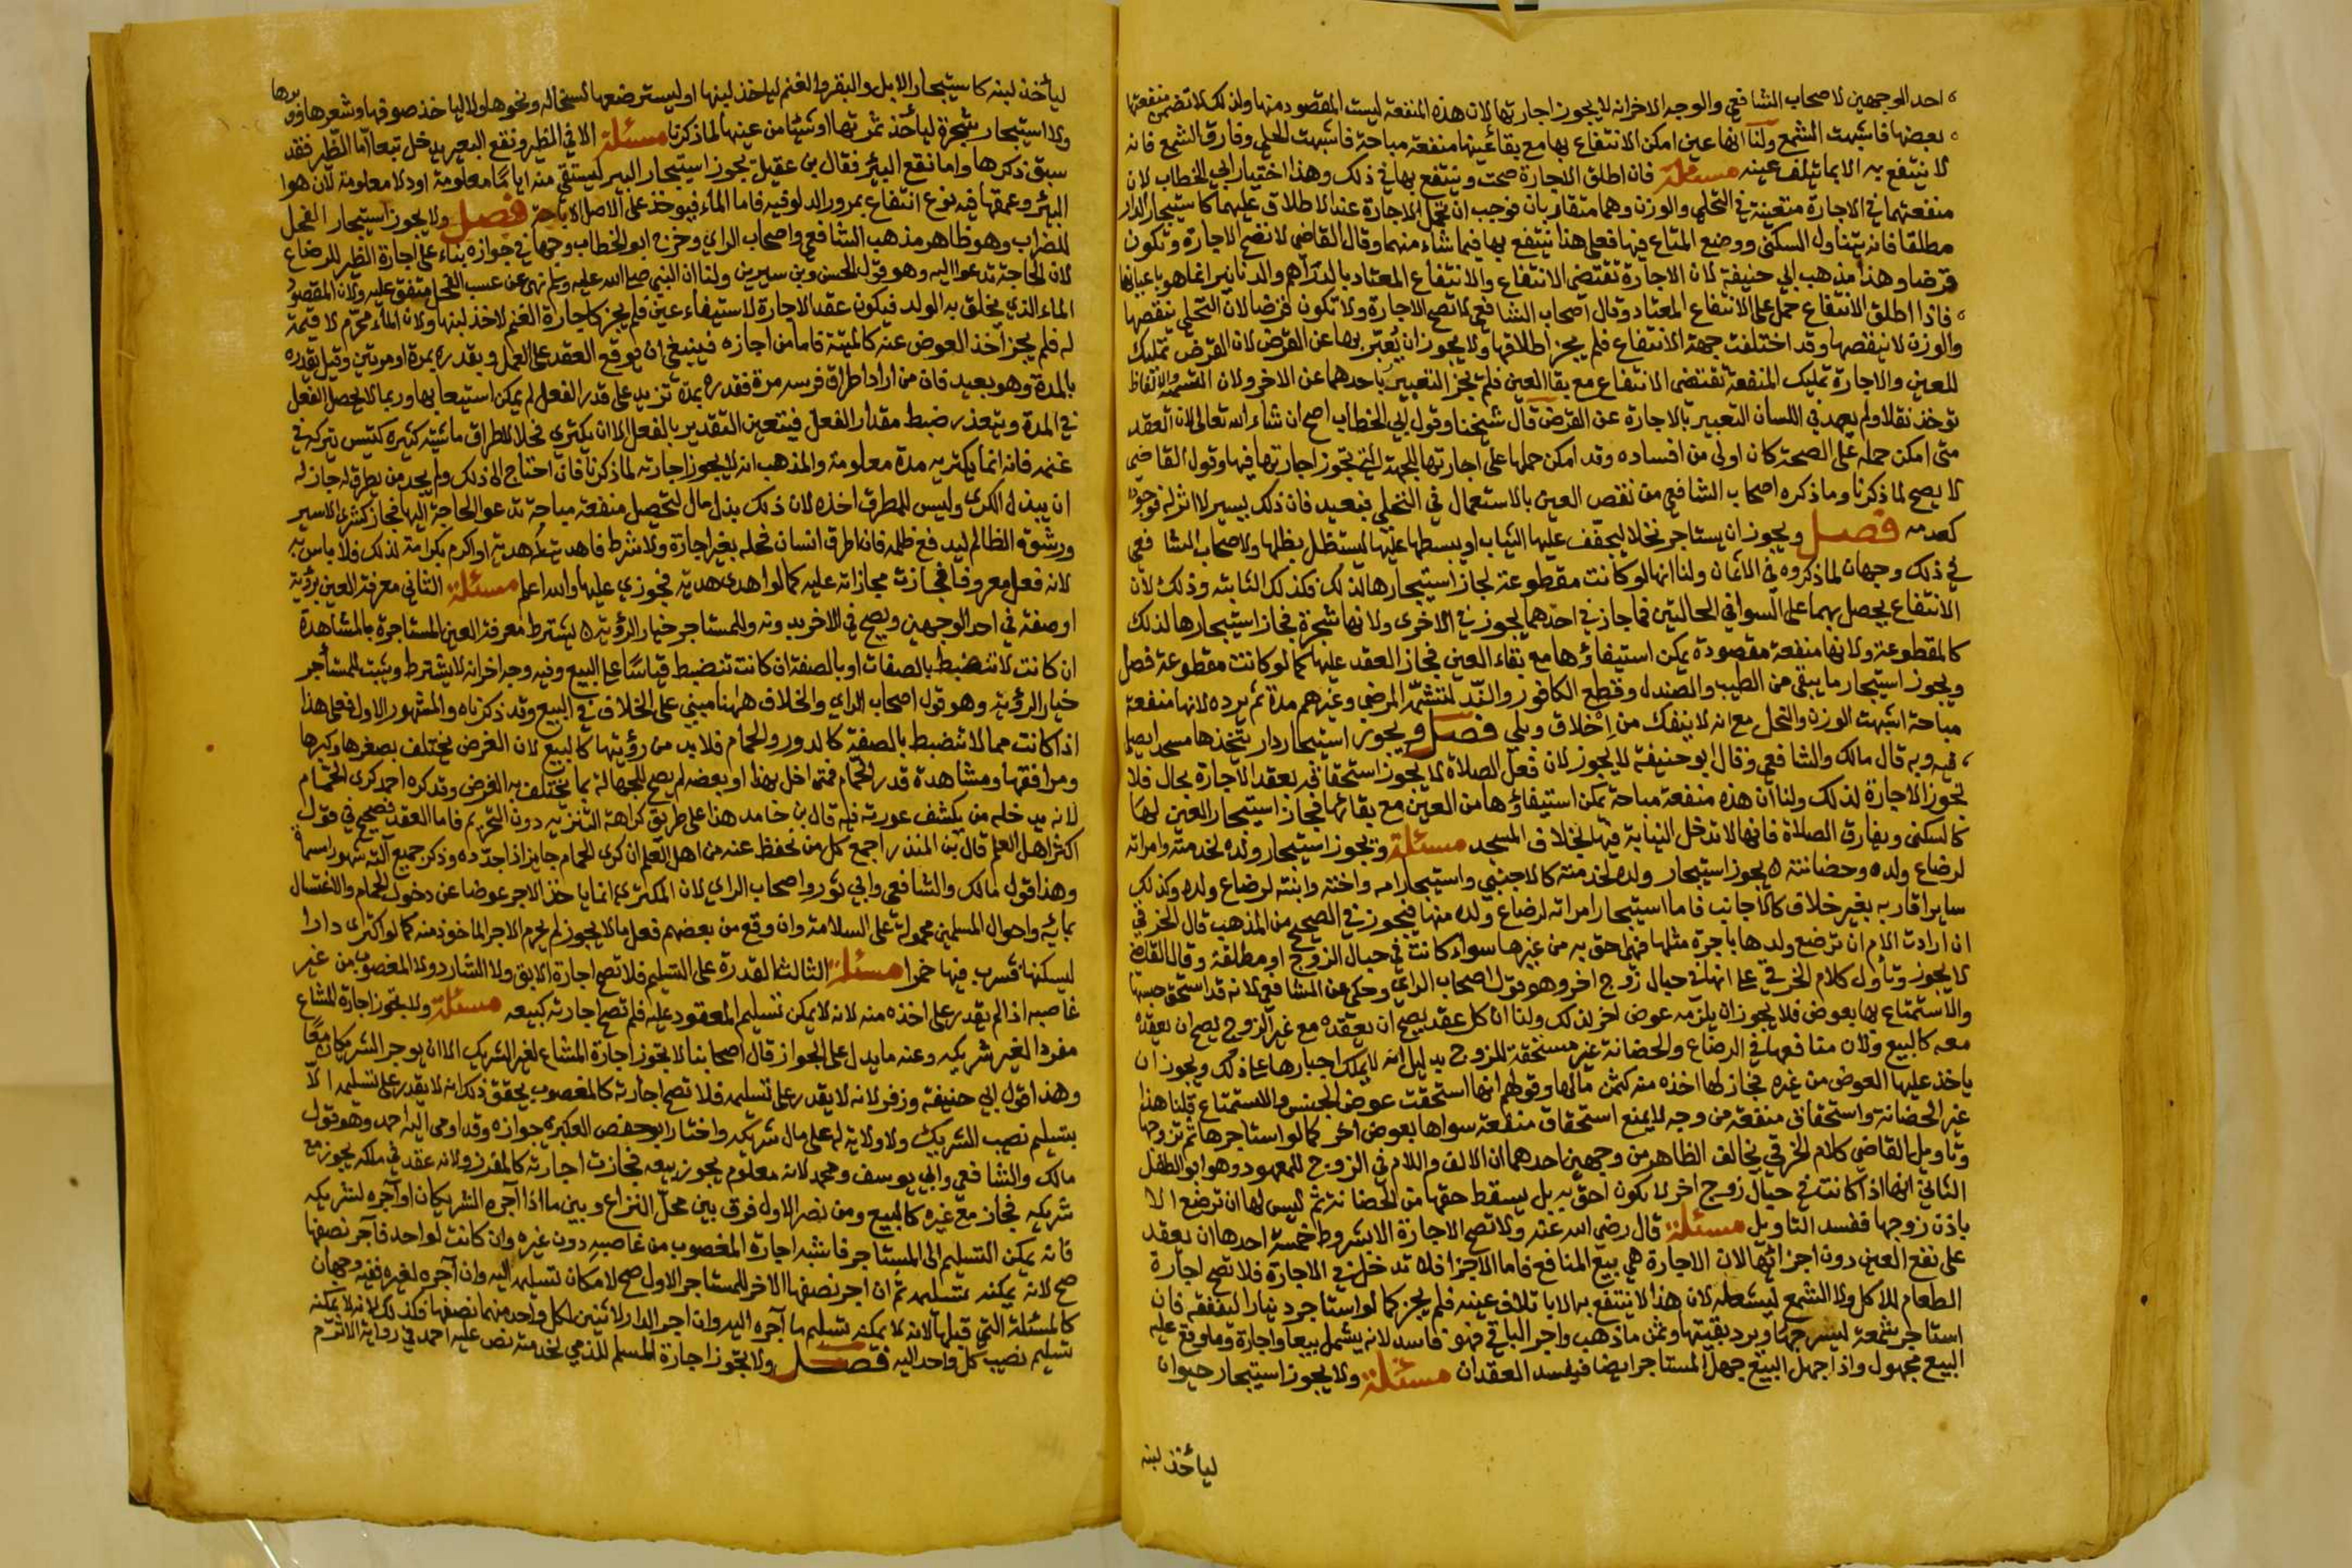 احد الوجهين لاصحاب الشافعي والوجه الاخر انه لا يجوز اجارتها لان هذه المنفعة ليست المقصود منها ولذلك لا تضمن منفعتها
بغصبها فاشبهت الشمع ولنا انها عين امكن الانتفاع بها مع بقاء عينها منفعة مباحة فاشبهت الحلي وفارق الشمع فانه
لا ينتفع به الا بما يتلف عينه مسئلة فان اطلق الاجارة صحت وينتفع بها في ذلك وهذا اختيار ابي الخطاب لان
منفعتهما في الاجارة متعينة في التحلي والوزن وهما متقاربان فوجب ان تحمل الاجارة عند الاطلاق عليهما كاستيجار الدار
مطلقا فانه يتناول السكنى ووضع المتاع فيها فعلى هذا ينتفع بها فيما شاء منهما وقال القاضي لا تصح الاجارة وتكون
قرضا وهذا مذهب ابي حنيفة لان الاجارة تقتضي الانتفاع والانتفاع المعتاد بالدراهم والدنانير انما هو باعيانها
فاذا اطلق الانتفاع حمل على الانتفاع المعتاد وقال اصحاب الشافعي لا تصح الاجارة ولا تكون قرضا لان التحلي ينقصها
والوزن لا ينقصها وقد اختلفت جهة الانتفاع فلم يجز اطلاقها ولا يجوز ان يعبر بها عن القرض لان القرض تمليك
للعين والاجارة تمليك المنفعة تقتضي الانتفاع مع بقا العين فلم يجز التعبير باحدهما عن الاخر ولان التسمية والالفاظ
توخذ نقلا ولم يعهد في اللسان التعبير بالاجارة عن القرض قال شيخنا وقول ابي الخطاب اصح ان شاء الله تعالى لان العقد
متى امكن حمله على الصحة كان اولى من افساده وقد امكن حملها على اجارتها للجهة التي تجوز اجارتها فيها وقول القاضي
لا يصح لما ذكرنا وما ذكره اصحاب الشافعي من نقص العين بالاستعمال في التحلي فبعيد فان ذلك يسير لا اثر له فوجوده
كعدمه فصل ويجوز ان يستاجر نخلا ليجفف عليها الثياب او يبسطها عليها ليستظل بظلها ولاصحاب الشافعي
في ذلك وجهان لما ذكروه في الاثمان ولنا انها لو كانت مقطوعة لجاز استيجارها لذلك فكذلك الثابتة وذلك لان
الانتفاع يحصل بهما على السوا في الحالتين فما جاز في احدهما يجوز في الاخرى ولانها شجرة فجاز استيجارها لذلك
كالمقطوعة ولانها منفعة مقصودة يمكن استيفاؤها مع بقاء العين فجاز العقد عليها كما لو كانت مقطوعة فصل
ويجوز استيجار ما يبقى من الطيب والصندل وقطع الكافور والند لتشمه المرضى وغيرهم مدة ثم يرده لانها منفعة
مباحة اشبهت الوزن والتحلي مع انه لا ينفك من اخلاق وبلى فصل ويجوز استيجار دار يتخذها مسجدا يصلي
فيه وبه قال مالك والشافعي وقال ابو حنيفة لا يجوز لان فعل الصلاة لا يجوز استحقاقه بعقد الاجارة بحال فلا
تجوز الاجارة لذلك ولنا ان هذه منفعة مباحة يمكن استيفاؤها من العين مع بقائها فجاز استيجار العين لها
كالسكنى ويفارق الصلاة فانها لا تدخل النيابة فيها بخلاف المسجد مسئلة ويجوز استيجار ولده لخدمته وامراته
لرضاع ولده وحضانته يجوز استيجار ولده لخدمته كالاجنبي واستيجار امه واخته وابنته لرضاع ولده وكذلك
ساير اقاربه بغير خلاف كالاجانب فاما استيجار امراته لرضاع ولده منها فيجوز في الصحيح من المذهب قال الخرقي
ان ارادت الام ان ترضع ولدها باجرة مثلها فهي احق به من غيرها سواء كانت في حبال الزوج او مطلقة وقال القاضي
لا يجوز وتأول كلام الخرقي على انها في حبال زوج اخر وهو قول اصحاب الراي وحكي عن الشافعي لانه قد استحق حبسها
والاستمتاع بها بعوض فلا يجوز ان يلزمه عوض اخر لذلك ولنا ان كل عقد يصح ان يعقده مع غير الزوج يصح ان يعقده
معه كالبيع ولان منافعها في الرضاع والحضانة غير مستحقة للزوج بدليل انه لا يملك اجبارها على ذلك ويجوز ان
ياخذ عليها العوض من غيره فجاز لها اخذه منه كثمن مالها وقولهم انها استحقت عوض الحبس والاستمتاع قلنا هذا
غير الحضانة واستحقاق منفعة من وجه لا يمنع استحقاق منفعة سواها بعوض اخر كما لو استاجرها ثم تزوجها
وتاويل القاضي كلام الخرقي يخالف الظاهر من وجهين احدهما ان الالف واللام في الزوج للمعهود وهو ابو الطفل
الثاني انها اذا كانت في حبال زوج اخر لا تكون احق به بل يسقط حقها من الحضانة ثم ليس لها ان ترضع الا
باذن زوجها ففسد التاويل مسئلة قال رضي الله عنه ولا تصح الاجارة الا بشروط خمسة احدها ان يعقد
على نفع العين دون اجزائها لان الاجارة هي بيع المنافع فاما الاجزا فلا تدخل في الاجارة فلا تصح اجارة
الطعام للاكل ولا الشمع ليشعله لان هذا لا ينتفع به الا باتلاف عينه فلم يجز كما لو استاجر دينارا لينفقه فان
استاجر شمعة ليسرجها ويرد بقيتها وثمن ما ذهب واجر الباقي فهو فاسد لانه يشمل بيعا واجارة وما وقع عليه
البيع مجهول واذا جهل البيع جهل المستاجر ايضا فيفسد العقدان مسئلة ولا يجوز استيجار حيوان
ليأخذ لبنه
ليأخذ لبنه كاستيجار الابل والبقر والغنم ليأخذ لبنها او ليسترضعها لسخاله ونحوها ولا لياخذ صوفها وشعرها ووبرها
ولا استيجار شجرة ليأخذ ثمرتها او شيئا من عينها لما ذكرنا مسئلة الا في الظير ونقع البير يدخل تبعا اما الظير فقد
سبق ذكرها واما نقع البئر فقال بن عقيل يجوز استيجار البير ليستقي منه اياما معلومة او دلا معلومة لان هوا
البئر وعمقها فيه نوع انتفاع بمرور الدلو فيه فاما الماء فيوخذ على الاصل الاباحة فصل ولا يجوز استيجار الفحل
للضراب وهو ظاهر مذهب الشافعي واصحاب الراي وخرج ابو الخطاب وجها في جوازه بناء على اجارة الظير للرضاع
لان الحاجة تدعوا اليه وهو قول الحسن وبن سيرين ولنا ان النبي صلى الله عليه وسلم نهى عن عسب الفحل متفق عليه ولان المقصود
الماء الذي يخلق به الولد فيكون عقد الاجارة لاستيفاء عين فلم يجز كاجارة الغنم لاخذ لبنها ولان الماء محرم لا قيمة
له فلم يجز اخذ العوض عنه كالميتة فاما من اجازه فينبغي ان يوقع العقد على العمل ويقدره بمرة او مرتين وقيل يقدره
بالمدة وهو بعيد فان من اراد اطراق فرسه مرة فقدره بمدة تزيد على قدر الفعل لم يمكن استيعابها وربما لا يحصل الفعل
في المدة ويتعذر ضبط مقدار الفعل فيتعين التقدير بالفعل الا ان يكتري فحلا لاطراق ماشية كثيرة كتيس يتركه في
غنمه فانه انما يكتريه مدة معلومة والمذهب انه لا يجوز اجارته لما ذكرنا فان احتاج الى ذلك ولم يجد من يطرق له جاز له
ان يبذل الكرى وليس للمطرق اخذه لان ذلك بذل مال لتحصيل منفعة مباحة تدعو الحاجة اليها فجاز كشرى الاسير
ورشوة الظالم ليدفع ظلمه فان اطرق انسان فحله بغير اجارة ولا شرط فاهديت له هدية او اكرم بكرامة لذلك فلا باس به
لانه فعل معروفا فجازت مجازاته عليه كما لو اهدى هدية فجوزي عليها والله اعلم مسئلة الثاني معرفة العين برؤية
او صفة في احد الوجهين ويصح في الاخر بدونه وللمستاجر خيار الرؤية يشترط معرفة العين المستاجرة بالمشاهدة
ان كانت لا تنضبط بالصفات او بالصفة ان كانت تنضبط قياسا على البيع وفيه وجه اخر انه لا يشترط ويثبت للمستأجر
خيار الرؤية وهو قول اصحاب الراي والخلاف ههنا مبني على الخلاف في البيع وقد ذكرناه والمشهور الاول فعلى هذا
اذا كانت مما لا تنضبط بالصفة كالدور والحمام فلا بد من رؤيتها كالبيع لان الغرض يختلف بصغرها وكبرها
ومرافقها ومشاهدة قدر الحمام فمتى اخل بهذا او بعضه لم يصح للجهالة بما يختلف به الغرض وقد كره احمد كرى الحمام
لانه يدخله من يكشف عورته فيه قال بن حامد هذا على طريق كراهة التنزيه دون التحريم فاما العقد فصحيح في قول
اكثر اهل العلم قال بن المنذر اجمع كل من نحفظ عنه من اهل العلم ان كرى الحمام جايز اذا حدده وذكر جميع آلته شهورا مسماة
وهذا قول مالك والشافعي وابي ثور واصحاب الراي لان المكتري انما ياخذ الاجر عوضا عن دخول الحمام والاغتسال
بمائه واحوال المسلمين محمولة على السلامة وان وقع من بعضهم فعل ما لا يجوز لم يحرم الاجر الماخوذ منه كما لو اكترى دارا
ليسكنها فشرب فيها خمرا مسئلة الثالث القدرة على التسليم فلا تصح اجارة الابق ولا الشارد ولا المغصوب من غير
غاصبه اذا لم يقدر على اخذه منه لانه لا يمكن تسليم المعقود عليه فلم تصح اجارته كبيعه مسئلة ولا تجوز اجارة المشاع
مفردا لغير شريكه وعنه ما يدل على الجواز قال اصحابنا لا تجوز اجارة المشاع لغير الشريك الا ان يوجر الشريكان معا
وهذا قول ابي حنيفة وزفر لانه لا يقدر على تسليمه فلا تصح اجارته كالمغصوب يحقق ذلك انه لا يقدر على تسليمه الا
بتسليم نصيب الشريك ولا ولاية له على مال شريكه واختار ابو حفص العكبري جوازه وقد اومى اليه احمد وهو قول
مالك والشافعي وابي يوسف ومحمد لانه معلوم يجوز بيعه فجازت اجارته كالمفرز ولانه عقد في ملكه يجوز مع
شريكه فجاز مع غيره كالبيع ومن نصر الاول فرق بين محل النزاع وبين ما اذا آجره الشريكان او آجره لشريكه
فانه يمكن التسليم الى المستاجر فاشبه اجارة المغصوب من غاصبه دون غيره وان كانت لواحد فآجر نصفها
صح لانه يمكنه تسليمه ثم ان اجر نصفها الاخر للمستاجر الاول صح لامكان تسليمه اليه وان آجره لغيره ففيه وجهان
كالمسئلة التي قبلها لانه لا يمكنه تسليم ما آجره اليه وان اجر الدار لاثنين لكل واحد منهما نصفها فكذلك لانه لا يمكنه
تسليم نصيب كل واحد اليه فصل ولا تجوز اجارة المسلم للذمي لخدمته نص عليه احمد في رواية الاثرم